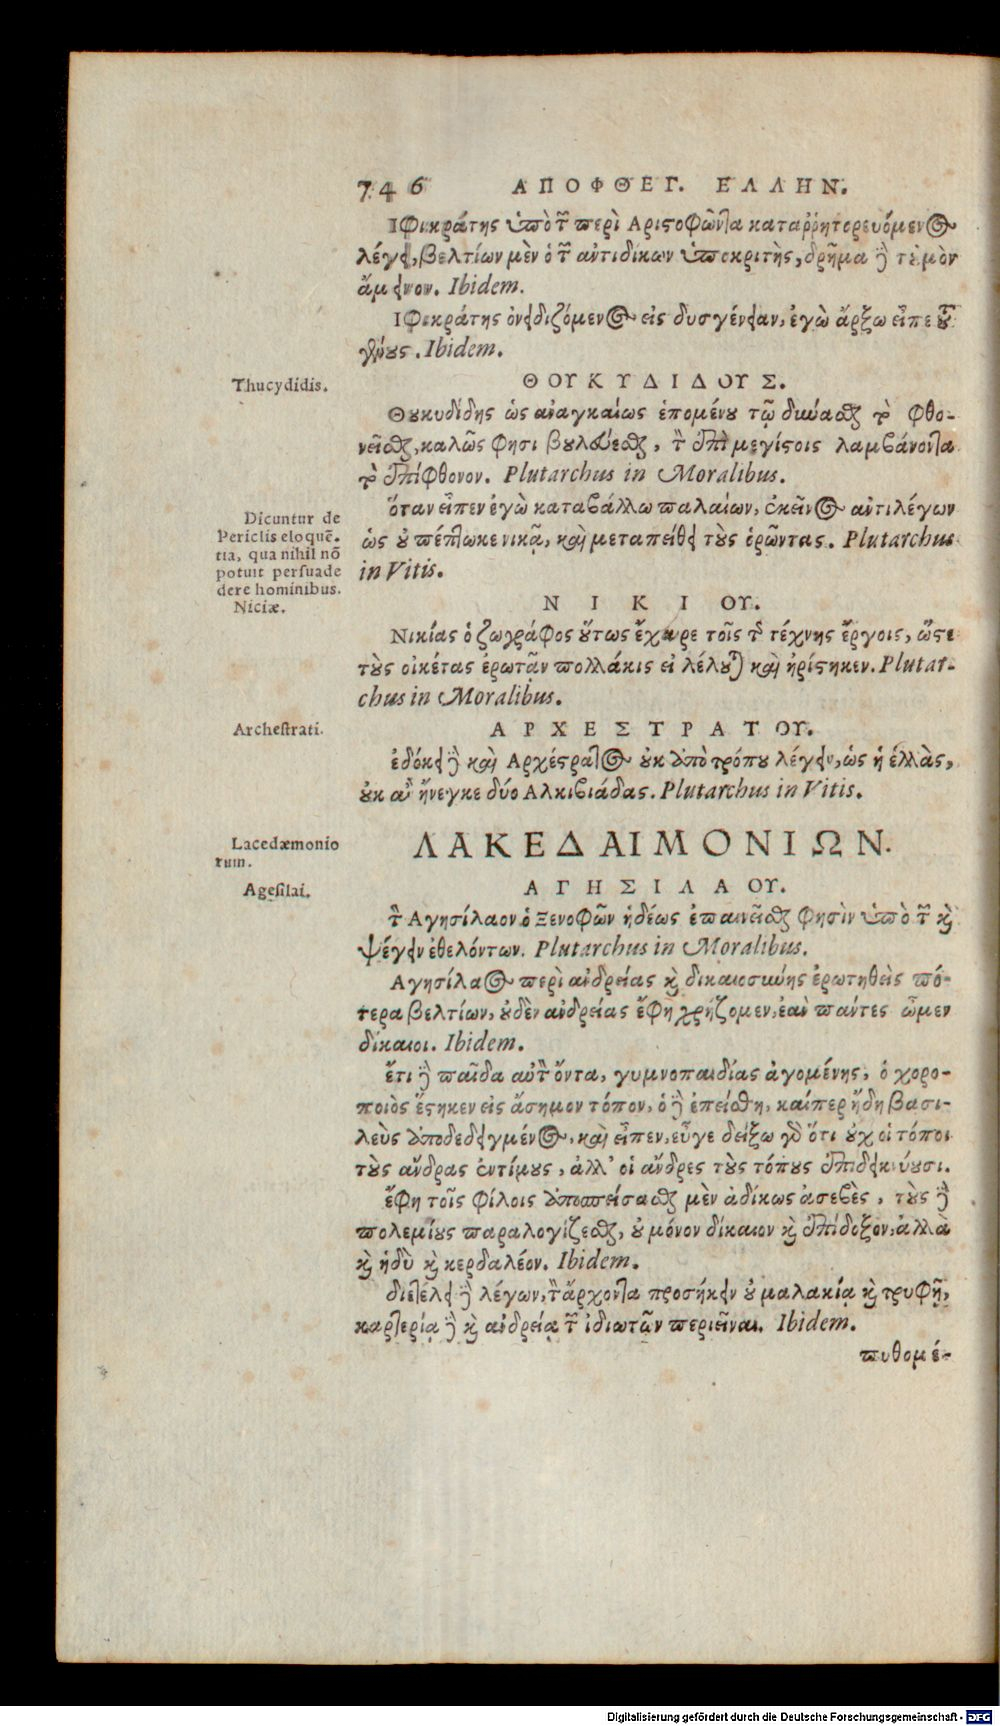 746 ΑΠΟΦΘΕΓ. ΕΛΛΗΝ.
Ιφικράτης ὑπὸ τ̃ περὶ Αριστοφῶντα καταῤῥητορευόμενος
λέγει, βελτίων μὲν ὁ τ̃ αντιδίκων ὑποκριτὴς, δρᾶμα ἢ τ᾽ ἐμὸν
ἄμεινον. Ibidem.
Ιφικράτης ὀνειδιζόμενος εἰς δυσγένειαν, ἐγὼ ἄρξω εἶπε τοῦ
γένους. Ibidem.
Thucydidis.
ΘΟΥΚΥΔΙΔΟΥΣ.
Θουκυδίδης ὡς αναγκαίως ἑπομένου τῷ δύναϑαι τὸ φθο-
νεῖϑαι, καλῶς φησι βουλεύεϑαι, τ̀ ἐπὶ μεγίστοις λαμβάνοντα
τὸ ἐπίφθονον. Plutarchus in Moralibus.
ὅταν εἶπεν ἐγὼ καταβάλλω παλαίων, ἐκεῖνος αντιλέγων
ὡς οὐ πέπτωκε νικᾷ, καὶ μεταπείθει τοὺς ὁρῶντας. Plutarchus
in Vitis.
Dicuntur de
Periclis eloquẽ-
tia, qua nihil nõ
potuit persuade
dere hominibus.
Niciæ.
ΝΙΚΙΟΥ.
Νικίας ὁ ζωγράφος οὕτως ἔχαιρε τοῖς τῆς τέχνης ἔργοις, ὥστε
τοὺς οἰκέτας ἐρωτᾶν πολλάκις εἰ λέλουται καὶ ἠρίστηκεν. Plutar-
chus in Moralibus.
Archestrati.
ΑΡΧΕΣΤΡΑΤΟΥ.
ἐδόκει δὲ καὶ Αρχέστρατος οὐκ ἀπὸ τρόπου λέγειν, ὡς ἡ ἑλλὰς,
οὐκ ἂν ἤνεγκε δύο Αλκιβιάδας. Plutarchus in Vitis.
Lacedæmonio
rum.
ΛΑΚΕΔΑΙΜΟΝΙΩΝ.
Agesilai.
ΑΓΗΣΙΛΑΟΥ.
τ̀ Αγησίλαον ὁ Ξενοφῶν ἡδέως ἐπαινεῖϑαι φησὶν ὑπὸ τ̃ καὶ
ψέγειν ἐθελόντων. Plutarchus in Moralibus.
Αγησίλαος περὶ ανδρείας καὶ δικαιοσύνης ἐρωτηθεὶς πό-
τερα βελτίων, οὐδὲν ανδρείας ἔφη χρῄζομεν, ἐὰν παντες ὦμεν
δίκαιοι. Ibidem.
ἔτι δὲ παῖδα αὐτ̀ ὄντα, γυμνοπαιδίας ἀγομένης, ὁ χορο-
ποιὸς ἔστηκεν εἰς ἄσημον τόπον, ὁ δὲ ἐπείϑη, καίπερ ἤδη βασι-
λεὺς ἀποδεδειγμένος, καὶ εἶπεν, εὖγε δείξω γὰρ ὅτι οὐχ οἱ τόποι
τοὺς ἄνδρας ἐντίμους, ἀλλ᾽ οἱ ἄνδρες τοὺς τόπους ἐπιδεικνύουσι.
ἔφη τοῖς φίλοις ἀποσπείσαϑαι μὲν ἀδίκως ἀσεβὲς, τοὺς δὲ
πολεμίους παραλογίζεϑαι, οὐ μόνον δίκαιον καὶ ἐπίδοξον, ἀλλὰ
καὶ ἡδὺ καὶ κερδαλέον. Ibidem.
διετέλει δὲ λέγων, τ̀ ἄρχοντα προσήκειν οὐ μαλακίᾳ καὶ τρυφῇ,
καρτερίᾳ δὲ καὶ ανδρείᾳ τ̃ ἰδιωτῶν περιεῖναι. Ibidem.
πυθομέ-
Digitalisierung gefördert durch die Deutsche Forschungsgemeinschaft - DFG